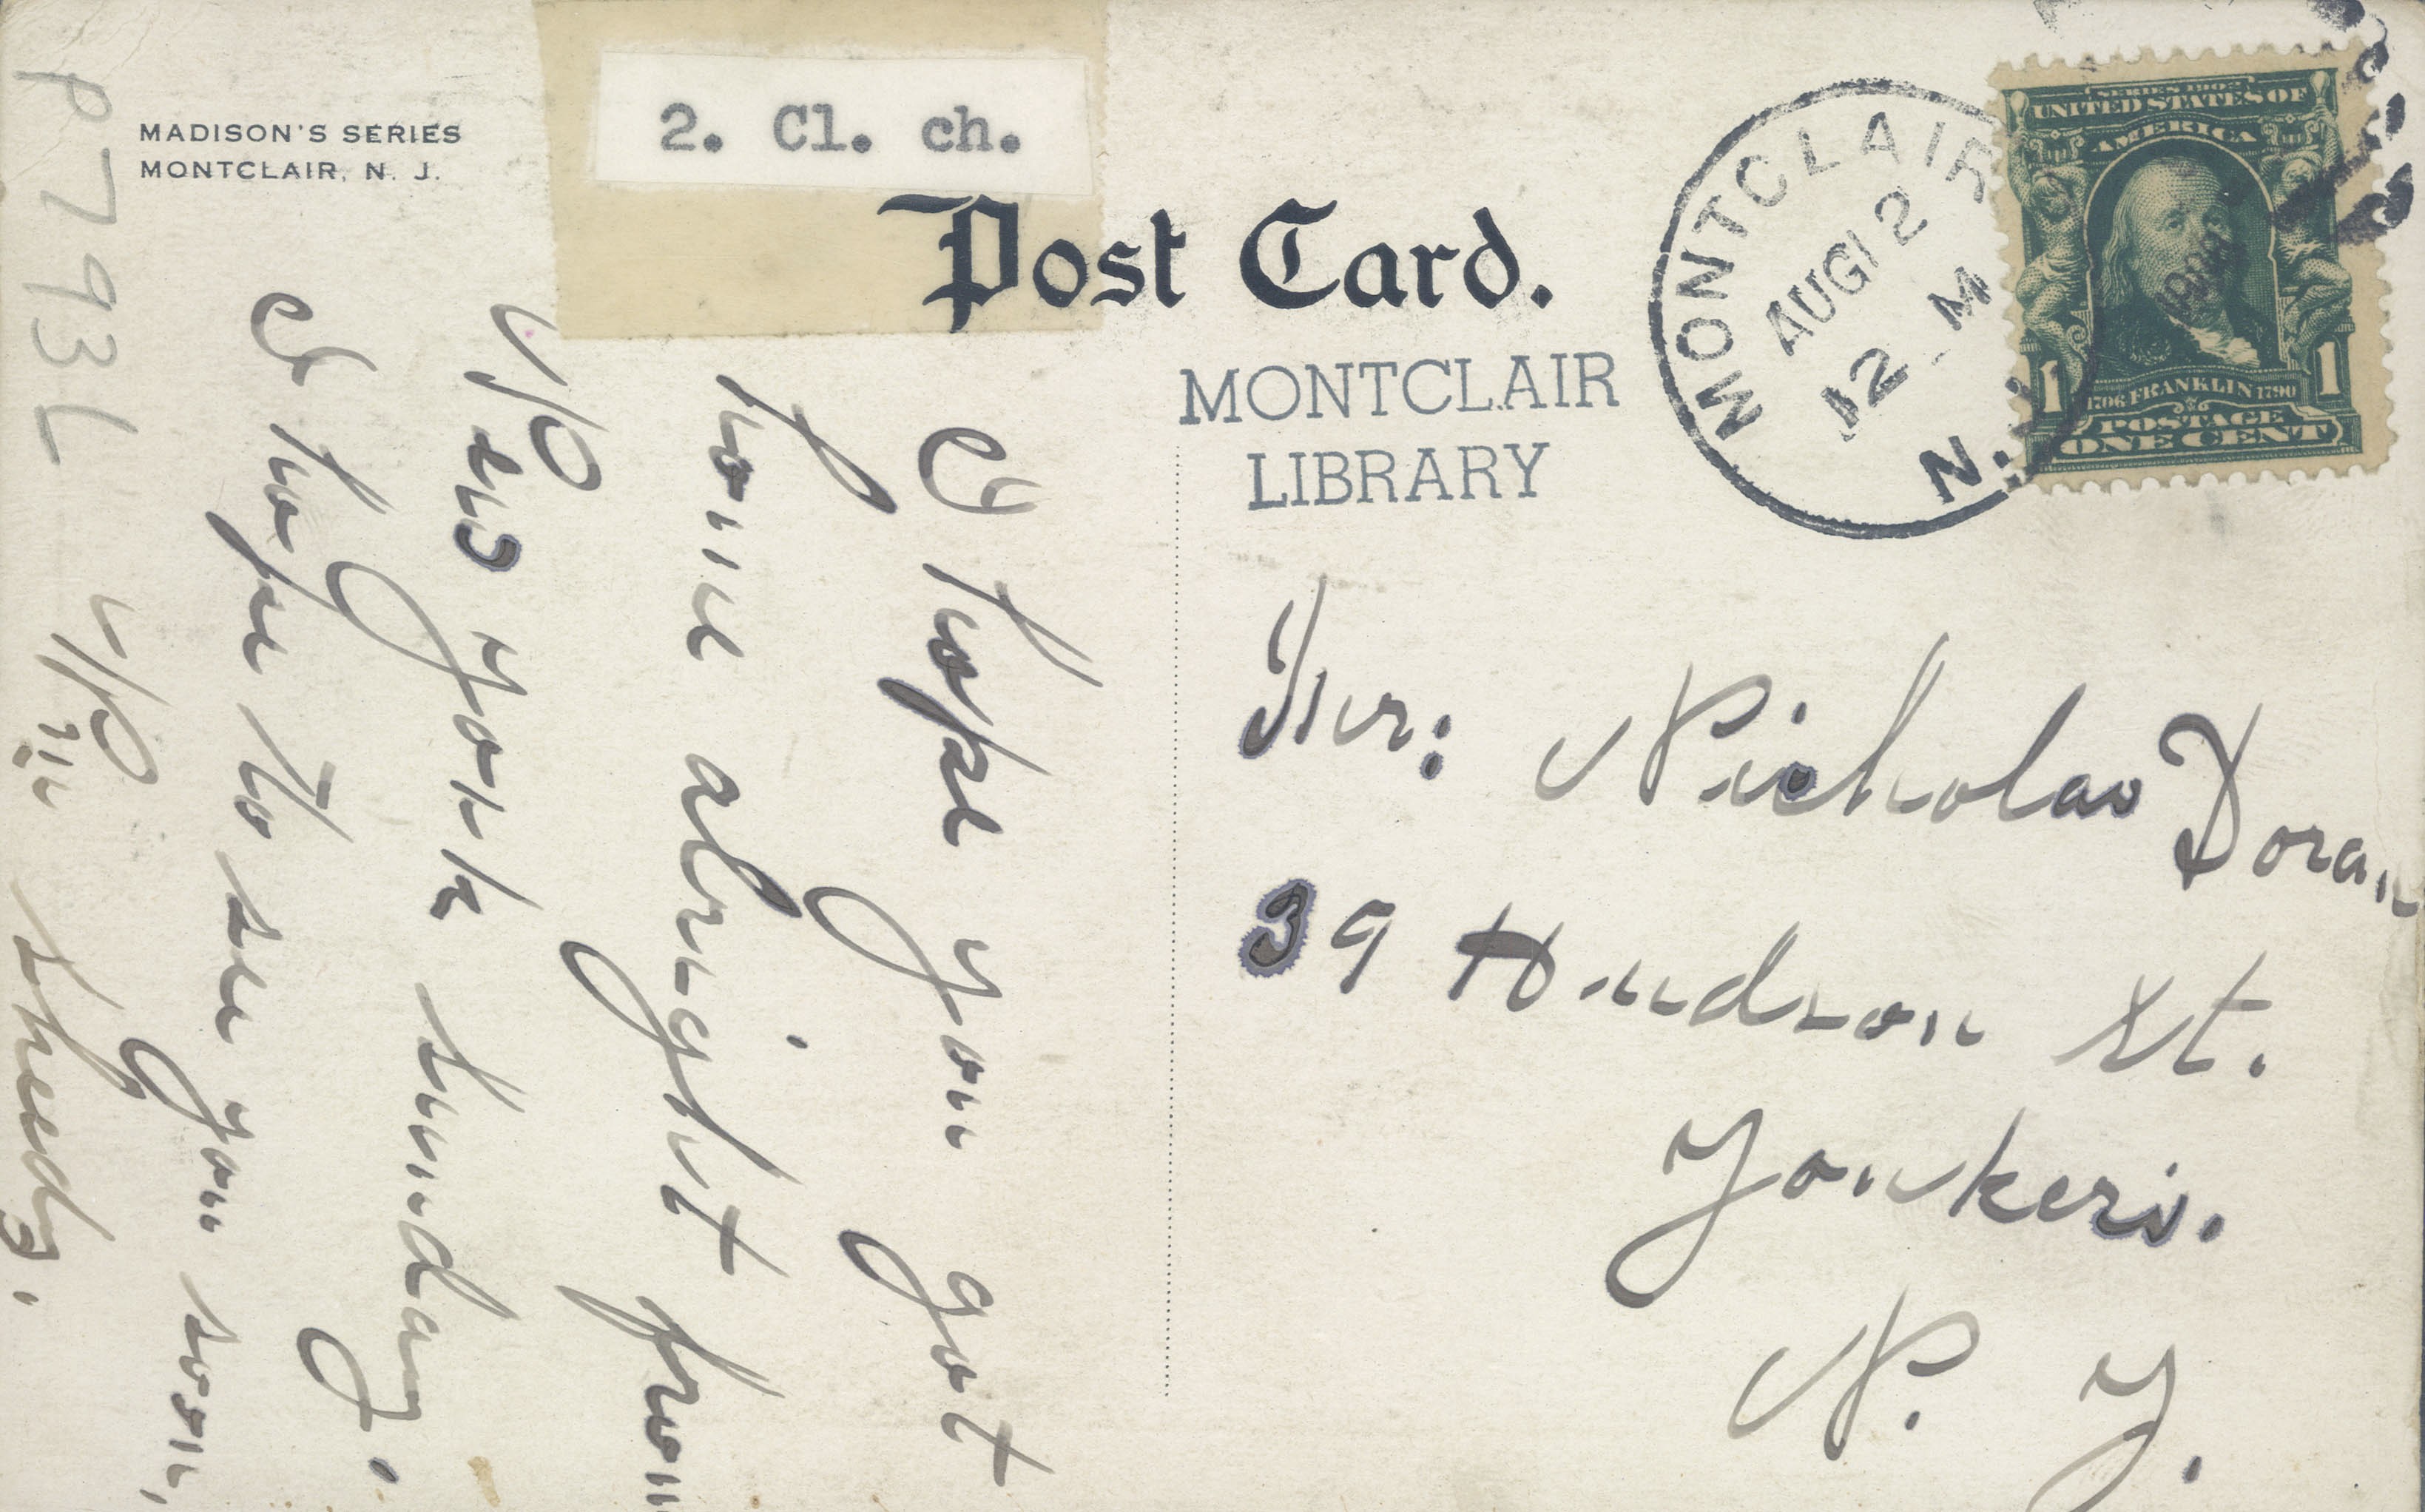 MADISON'S SERIES
MONTCLAIR, N. J.
2. Cl. ch.
Post Card.
MONTCLAIR
LIBRARY
MONTCLAIR
AUG 12
12 - M
N.
SERIES 1902
UNITED STATES OF
AMERICA
1 1
1706 FRANKLIN 1790
POSTAGE
ONE CENT
Nicholas Doran
39 Hudson St.
Yonkers.
N. Y.
I hope you got
home alright from
New York Sunday.
I hope to see you soon,
Sheedy.
P793L